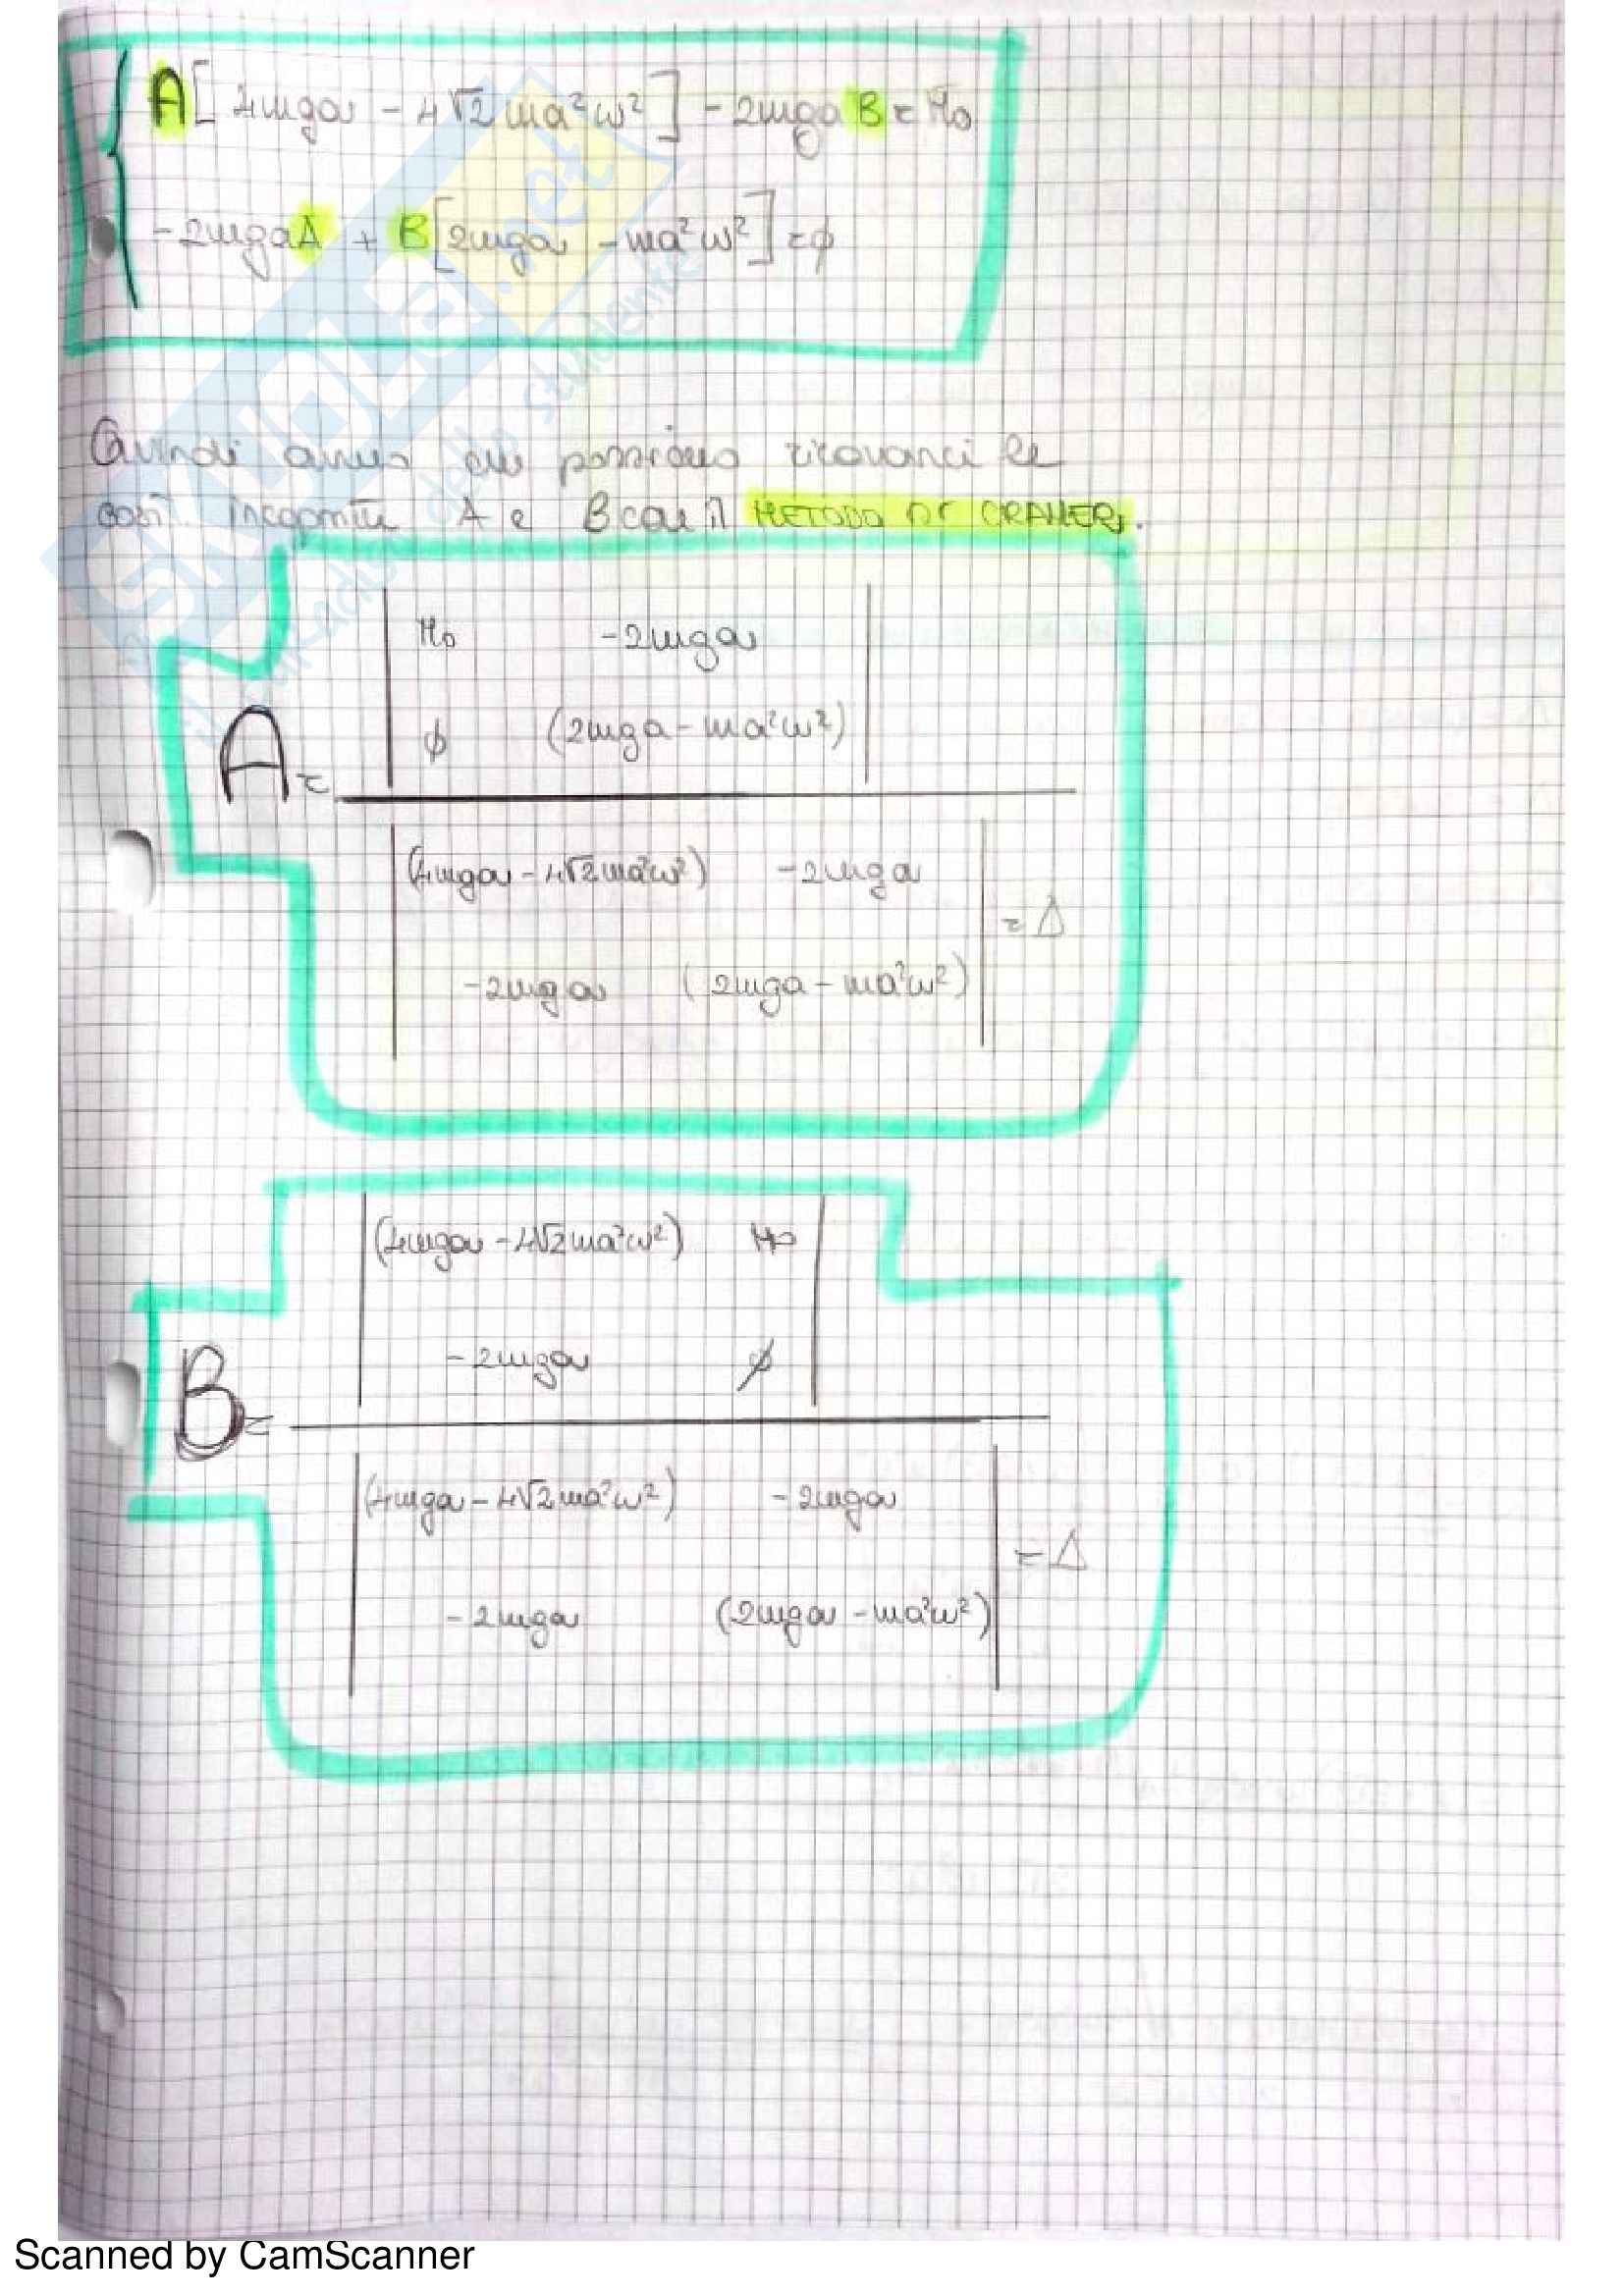 A[4mga - 4√2 ma²ω²] - 2mga B = M₀
-2mga A + B[2mga - ma²ω²] = ϕ
Quindi avremo che possiamo ritrovarci le
così incognite A e B con il METODO DI CRAMER.
M₀ -2mga
ϕ (2mga - ma²ω²)
A =
(4mga - 4√2 ma²ω²) -2mga
= Δ
-2mga (2mga - ma²ω²)
(4mga - 4√2 ma²ω²) M₀
-2mga ϕ
B =
(4mga - 4√2 ma²ω²) -2mga
= Δ
-2mga (2mga - ma²ω²)
SKUOLA.net
Scanned by CamScanner